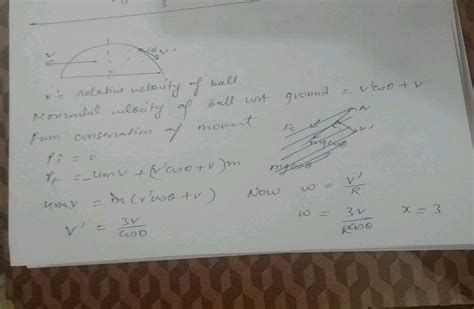 3
V
θ
V'
V' = relative velocity of ball
Horizontal velocity of ball wrt ground = v'cosθ + v
From conservation of moment
Pi = 0
Pf = -4mv + (v'cosθ + v)m
4mv = m(v'cosθ + v)
V' = 3V / cosθ
Now ω = V' / R
ω = 3V / Rcosθ
x = 3